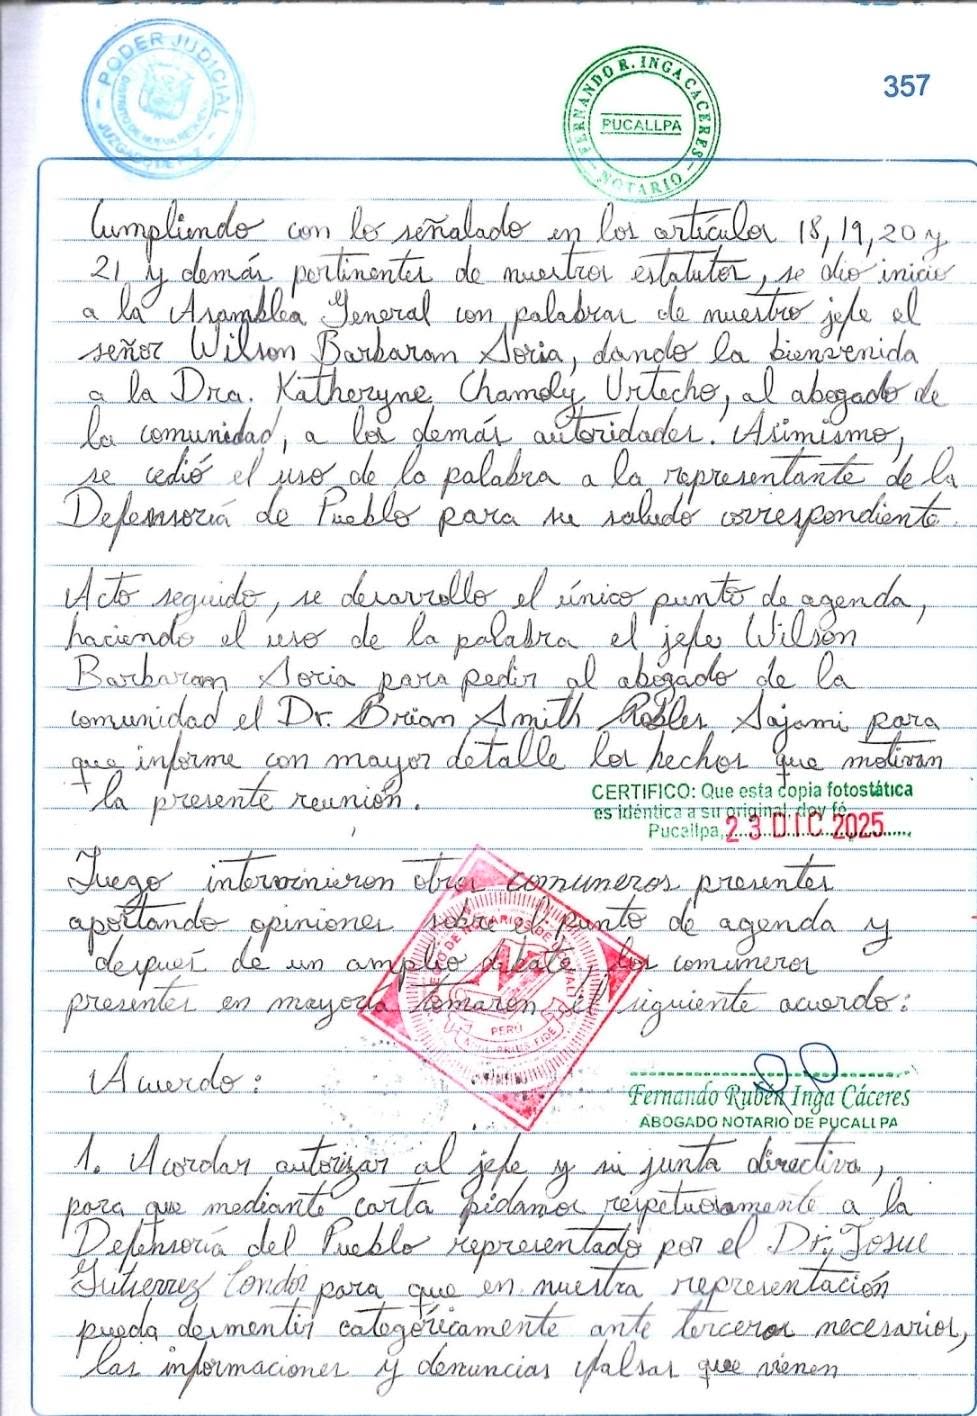 PODER JUDICIAL
JUZGADO DE PAZ
FERNANDO R. INGA CACERES
PUCALLPA
NOTARIO
357
Cumpliendo con lo señalado en los artículos 18, 19, 20 y
21 y demás pertinentes de nuestros estatutos, se dio inicio
a la Asamblea General con palabras de nuestro jefe el
señor Wilson Barbaram Soria, dando la bienvenida
a la Dra. Katheryne Chamoly Urtecho, al abogado de
la comunidad, a los demás autoridades. Asimismo,
se cedió el uso de la palabra a la representante de la
Defensoría de Pueblo para su saludo correspondiente.
Acto seguido, se desarrollo el único punto de agenda,
haciendo el uso de la palabra el jefe Wilson
Barbaram Soria para pedir al abogado de la
comunidad el Dr. Brian Smith Robles Sajami para
que informe con mayor detalle los hechos que motivan
la presente reunión.
CERTIFICO: Que esta copia fotostática
es idéntica a su original, doy fé.
Pucallpa, 23 DIC 2025
Luego intervinieron otros comuneros presentes
aportando opiniones sobre el punto de agenda y
después de un amplio debate, los comuneros
presentes en mayoría tomaron el siguiente acuerdo:
PERÚ
Acuerdo:
Fernando Rubén Inga Cáceres
ABOGADO NOTARIO DE PUCALLPA
1. Acordar autorizar al jefe y su junta directiva,
para que mediante carta pidamos respetuosamente a la
Defensoría del Pueblo representado por el Dr. Josue
Gutierrez Condor para que en nuestra representación
pueda desmentir categóricamente ante terceros necesarios,
las informaciones y denuncias falsas que vienen